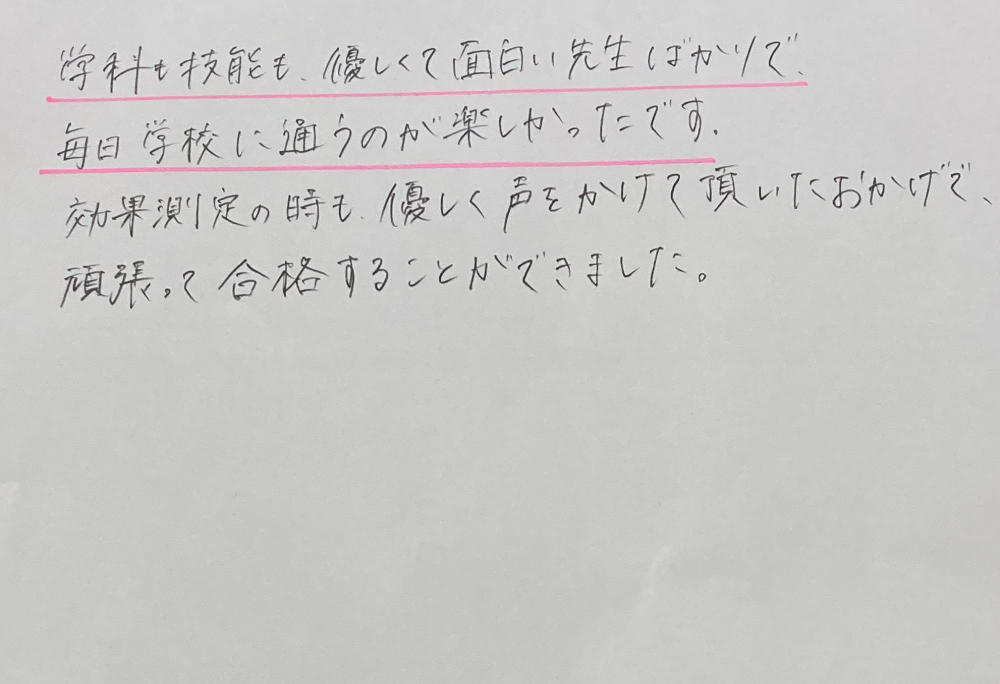 学科も技能も、優しくて面白い先生ばかりで、
毎日学校に通うのが楽しかったです。
効果測定の時も、優しく声をかけて頂いたおかげで、
頑張って合格することができました。